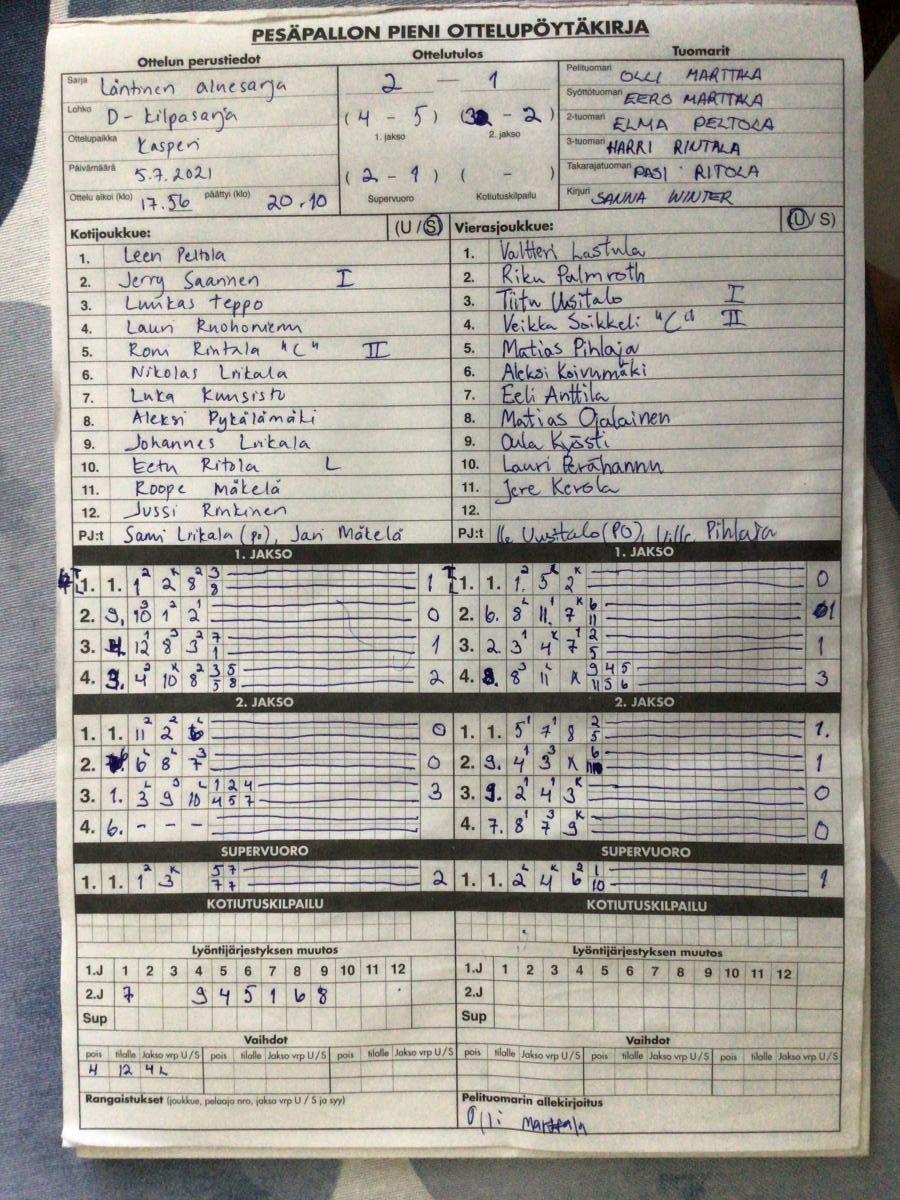 PESÄPALLON PIENI OTTELUPÖYTÄKIRJA
Ottelun perustiedot
Ottelutulos
Tuomarit
Sarja Läntinen aluesarja
Lohko D-kilpasarja
Ottelupaikka Kasperi
Päivämäärä 5.7.2021
Ottelu alkoi (klo) 17.56 päättyi (klo) 20.10
2 – 1
(4 – 5) ( – 2)
1. jakso 2. jakso
(2 – 1) ( – )
Supervuoro Kotiutuskilpailu
Pelituomari OLLI MARTTALA
Syöttötuomari EERO MARTTALA
2-tuomari ELMA PELTOLA
3-tuomari HARRI RINTALA
Takarajatuomari PASI RITOLA
Kirjuri SANNA WINTER
Kotijoukkue: (U/S)
1. Leen Peltola
2. Jerry Saannen I
3. Luukas Teppo
4. Lauri Ruohoniemi
5. Roni Rintala "C" II
6. Nikolas Liikala
7. Luka Kuusisto
8. Aleksi Pykälämäki
9. Johannes Liikala
10. Eetu Ritola L
11. Roope Mäkelä
12. Jussi Rinkinen
PJ:t Sami Liikala (po), Jari Mäkelä
Vierasjoukkue: (U/S)
1. Valtteri Lastula
2. Riku Palmroth
3. Tiitu Uusitalo I
4. Veikka Soikkeli "C" II
5. Matias Pihlaja
6. Aleksi Koivumäki
7. Eeli Anttila
8. Matias Ojalainen
9. Oula Kyösti
10. Lauri Perähannu
11. Jere Kerola
12.
PJ:t Uusitalo (PO), Ville Pihlaja
1. JAKSO
1. 1. 1² 2ᴷ 8² 3 8 1
2. 9. 10³ 1² 2¹ 0
3. 4. 12¹ 8³ 3² 7 1 1
4. 9. 4² 10ᴷ 8² 3 5 5 8 2
1. JAKSO
1. 1. 1² 5 2ᴷ 0
2. 6. 8ᴸ 11¹ 7ᴷ 6 11 1
3. 2. 3¹ 4ᴷ 7¹ 2 5 1
4. 8. 8³ 11 X 9 4 5 11 5 6 3
2. JAKSO
1. 1. 11² 2² 6ᴸ 0
2. 6ᴸ 8ᴸ 7³ 0
3. 1. 3ᴸ 9³ 10ᴸ 1 2 4 4 5 7 3
4. 6. - - -
2. JAKSO
1. 1. 5¹ 7¹ 8 2 5 1.
2. 9. 4¹ 3³ X 6 1
3. 9. 2¹ 4¹ 3ᴷ 0
4. 7. 8¹ 7³ 9ᴷ 0
SUPERVUORO
1. 1. 1² 3ᴷ 5 7 7 7 2
SUPERVUORO
1. 1. 2ᴸ 4ᴷ 6² 1 10 1
KOTIUTUSKILPAILU
KOTIUTUSKILPAILU
Lyöntijärjestyksen muutos
1.J 1 2 3 4 5 6 7 8 9 10 11 12
2.J 7 9 4 5 1 6 8
Sup
Lyöntijärjestyksen muutos
1.J 1 2 3 4 5 6 7 8 9 10 11 12
2.J
Sup
Vaihdot
pois tilalle Jakso vrp U/S pois tilalle Jakso vrp U/S pois tilalle Jakso vrp U/S
4 12 4L
Vaihdot
pois tilalle Jakso vrp U/S pois tilalle Jakso vrp U/S pois tilalle Jakso vrp U/S
Rangaistukset (joukkue, pelaaja nro, jakso vrp U / S ja syy)
Pelituomarin allekirjoitus
Olli Marttala